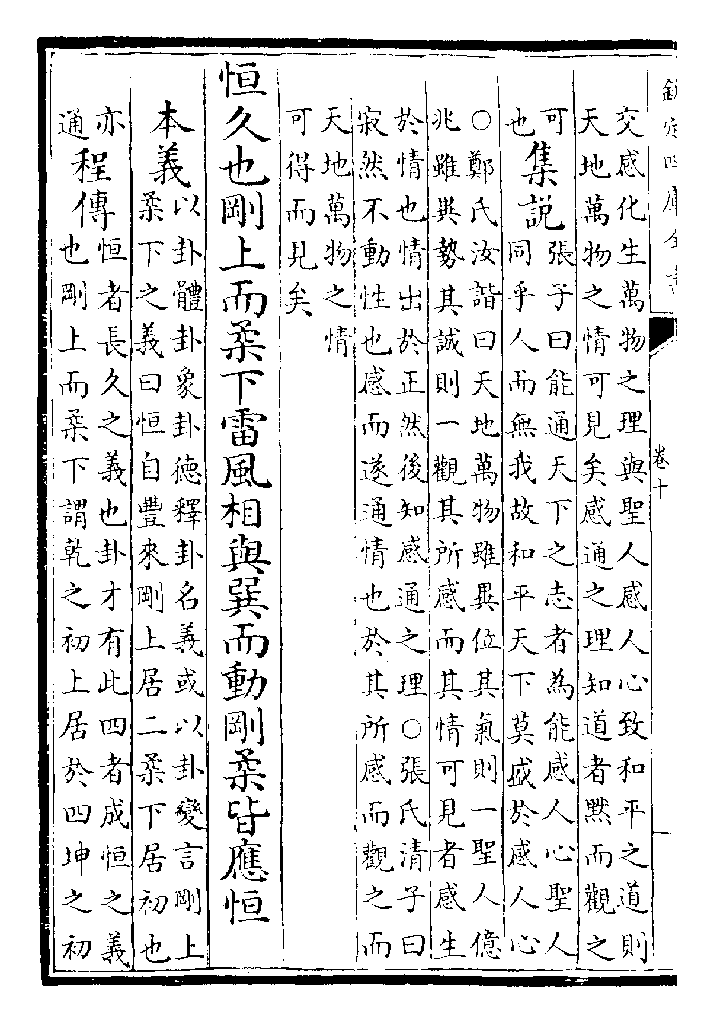 欽定四庫全書
卷十
交感化生萬物之理與聖人感人心致和平之道則
天地萬物之情可見矣感通之理知道者黙而觀之
可
也
集説
張子曰能通天下之志者為能感人心聖人
同乎人而無我故和平天下莫盛於感人心
○鄭氏汝諧曰天地萬物雖異位其氣則一聖人億
兆雖異勢其誠則一觀其所感而其情可見者感生
於情也情出於正然後知感通之理○張氏清子曰
寂然不動性也感而遂通情也於其所感而觀之而
天地萬物之情
可得而見矣
恒久也剛上而柔下雷風相與巽而動剛柔皆應恒
本義
以卦體卦象卦德釋卦名義或以卦變言剛上
柔下之義曰恒自豐來剛上居二柔下居初也
亦
通
程傳
恒者長久之義也卦才有此四者成恒之義
也剛上而柔下謂乾之初上居於四坤之初